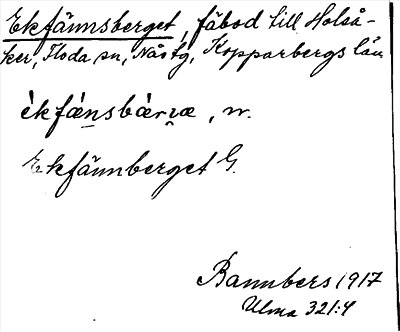 Ekfännsberget, fäbod till Holså-
ker, Floda sn, Nås tg, Kopparbergs län
èkfǽnsbærvæ, n.
Ekfännberget G.
Bannbers 1917
Ulma 321:4